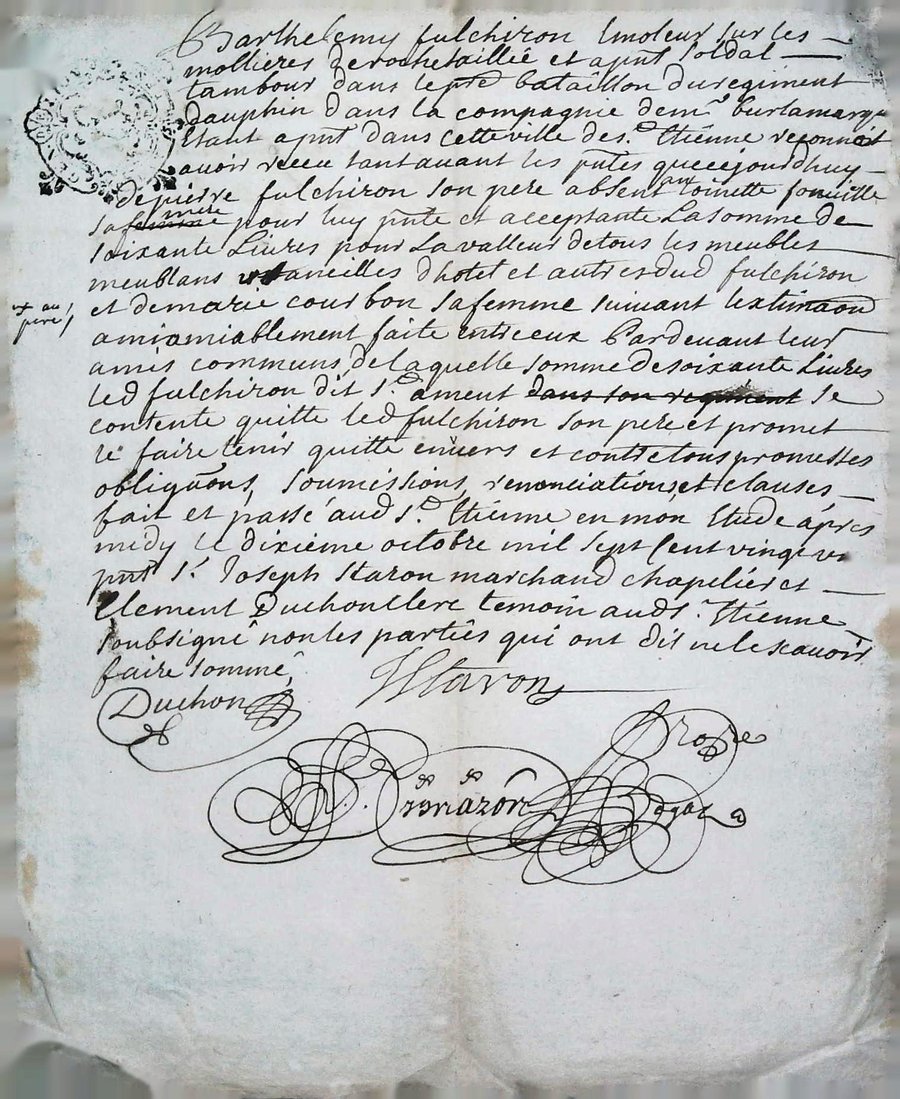 Barthelemy fulchiron Emoleur sur les
mollieres de rochetaillée et apnt soldat
tambour dans le pre bataillon du regiment
dauphin dans la compagnie de mr burlamarqu
Etant apnt dans cette ville de st Etienne reconnoit
avoir receu tant avant les pntes que cejourdhuy
de pierre fulchiron son pere absent antoinette fouville
sa femme mere pour luy pnte et acceptante La somme de
soixante Livres pour La valleur de tous les meubles
meublans ustancilles dhotel et autres dud fulchiron
x au
pere /
et de marie courbon sa femme suivant lextimaon
amiamiablement faite entre eux Pardevant leur
amis communs, de laquelle somme de soixante Livres
led fulchiron dit st ament dans son regiment se
contente quitte led fulchiron son pere et promet
le faire tenir quitte envers et contre tous promesses
obligaons, soumissions, renonciations, et clauses
fait et passé aud st Etienne en mon Etude apres
midy le dixieme octobre mil sept Cent vingt
pnt sr Joseph Staron marchand chapelier et
Clement Duchon Clerc temoin aud st Etienne
soubsigné non les parties qui ont dit ne le scavoir
faire sommé,
Duchon
JStaron